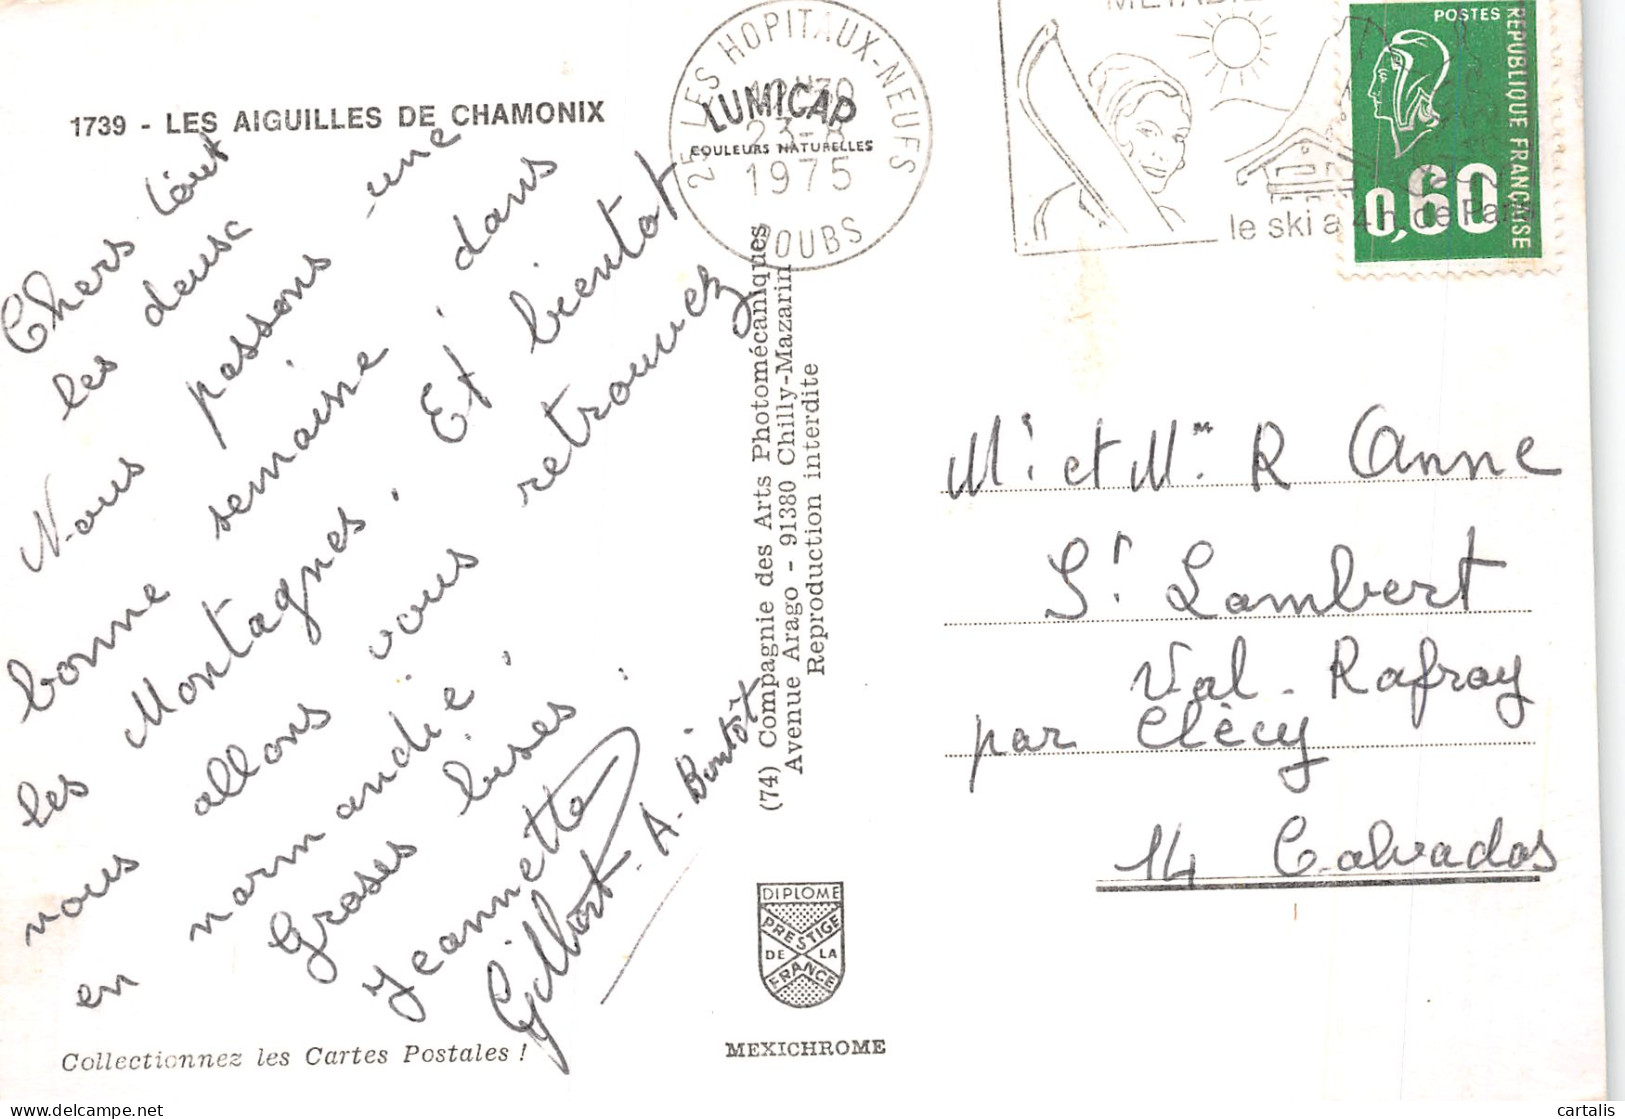 1739 - LES AIGUILLES DE CHAMONIX
Chers tout
les deux
Nous passons une
bonne semaine dans
les Montagnes. Et bientot
nous allons vous retrouvez
en normandie.
Groses bises.
Jeannette
Gilbert - A. Bintôt
Collectionnez les Cartes Postales !
25 LES HOPITAUX-NEUFS
23-8
1975
DOUBS
LUMICAP
COULEURS NATURELLES
le ski a 4h de Paris
POSTES
REPUBLIQUE FRANÇAISE
0,60
(74) Compagnie des Arts Photomécaniques
Avenue Arago - 91380 Chilly-Mazarin
Reproduction interdite
DIPLOME
PRESTIGE
DE LA
FRANCE
MEXICHROME
Mr et Mme R Anne
St Lambert
Val - Rafray
par Clècy
14 Calvados
cartalis